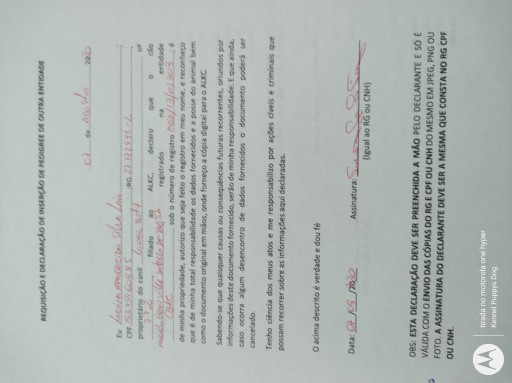 REQUISIÇÃO E DECLARAÇÃO DE INSERÇÃO DE PEDIGREE DE OUTRA ENTIDADE
de 20
Eu
CPF RG
proprietário do canil nº
filiado ao ALKC, declaro que o cão
registrado na entidade
sob o número de registro , é
de minha propriedade, autorizo que seja feito o registro em meu nome, e reconheço
que é de minha total responsabilidade os dados fornecidos e a posse do animal bem
como o documento original em mãos, onde forneço a cópia digital para o ALKC.
Sabendo-se que quaisquer causas ou consequências futuras recorrentes, oriundos por
informações deste documento fornecido, serão de minha responsabilidade. E que ainda,
caso ocorra algum desencontro de dados fornecidos o documento poderá ser
cancelado.
Tenho ciência dos meus atos e me responsabilizo por ações cíveis e criminais que
possam recorrer sobre as informações aqui declaradas.
O acima descrito é verdade e dou fé
Data: Assinatura:
(Igual ao RG ou CNH)
OBS: ESTA DECLARAÇÃO DEVE SER PREENCHIDA A MÃO PELO DECLARANTE E SÓ É
VÁLIDA COM O ENVIO DAS CÓPIAS DO RG E CPF OU CNH DO MESMO EM JPEG, PNG OU
FOTO. A ASSINATURA DO DECLARANTE DEVE SER A MESMA QUE CONSTA NO RG CPF
OU CNH.
tirada no motorola one hyper
Kennel Puppys Dog